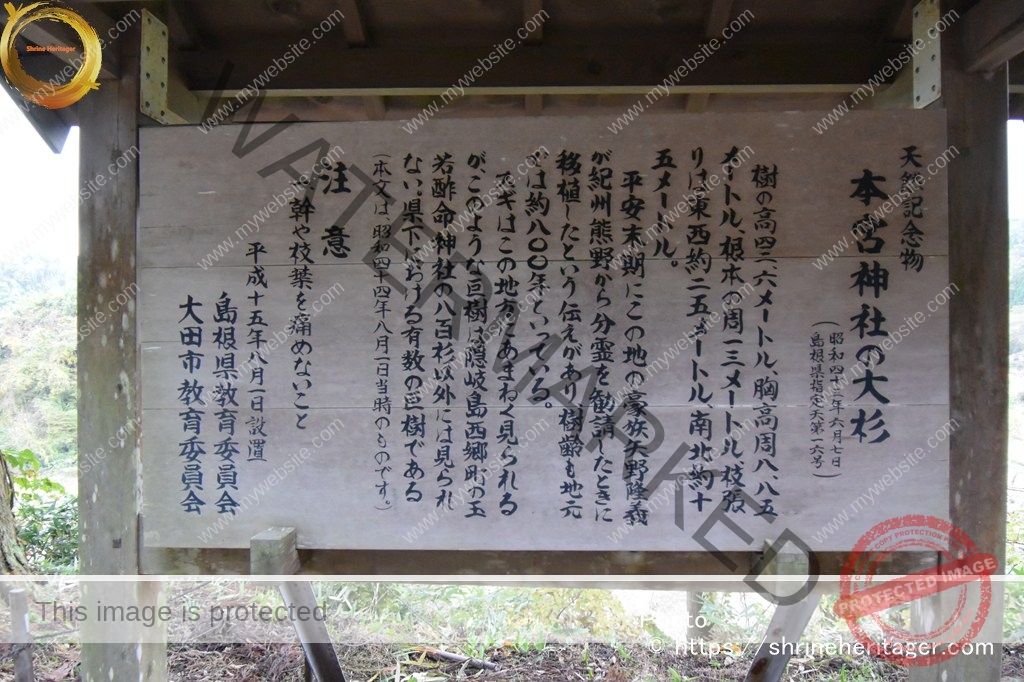 天然記念物
本宮神社の大杉
（昭和四十三年六月七日
島根県指定天第一六号）
樹の高四二、六メートル、胸高周八、八五
メートル、根本の周一三メートル枝張
りは東西約二五メートル、南北約十
五メートル。
平安末期にこの地の豪族矢野隆義
が紀州熊野から分霊を勧請したときに
移植したという伝えがあり樹齢も地元
では約八〇〇年といっている。
スギはこの地方にあまねく見られる
が、このような巨樹は隠岐島西郷町の玉
若酢命神社の八百杉以外には見られ
ない県下における有数の巨樹である
（本文は、昭和四十四年八月一日当時のものです。）
注意
一、幹や枝葉を痛めないこと
平成十五年八月一日設置
島根県教育委員会
大田市教育委員会
Shrine Heritager
www.mywebsite.com
WATERMARKED
PROTECTED IMAGE
This image is protected
Photo
© https://shrineheritager.com